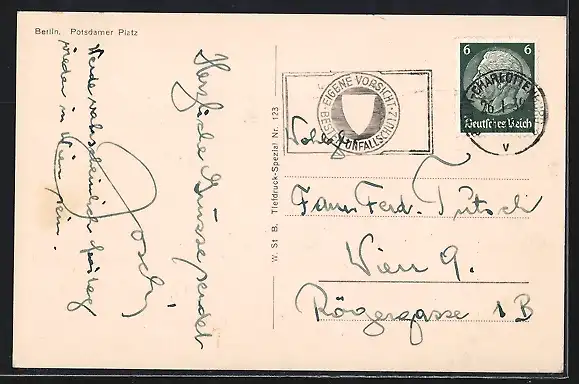 Berlin. Potsdamer Platz
Herzliche Grüsse sendet
Poschi
Werde wahrscheinlich freitag
wieder in Wien sein.
W. St B. Tiefdruck-Spezial Nr. 123
EIGENE VORSICHT
BESTER UNFALLSCHUTZ
6 6
Deutsches Reich
CHARLOTTE
V
Fam. Ferd. Tutsch
Wien 9.
Rögergasse 1 B